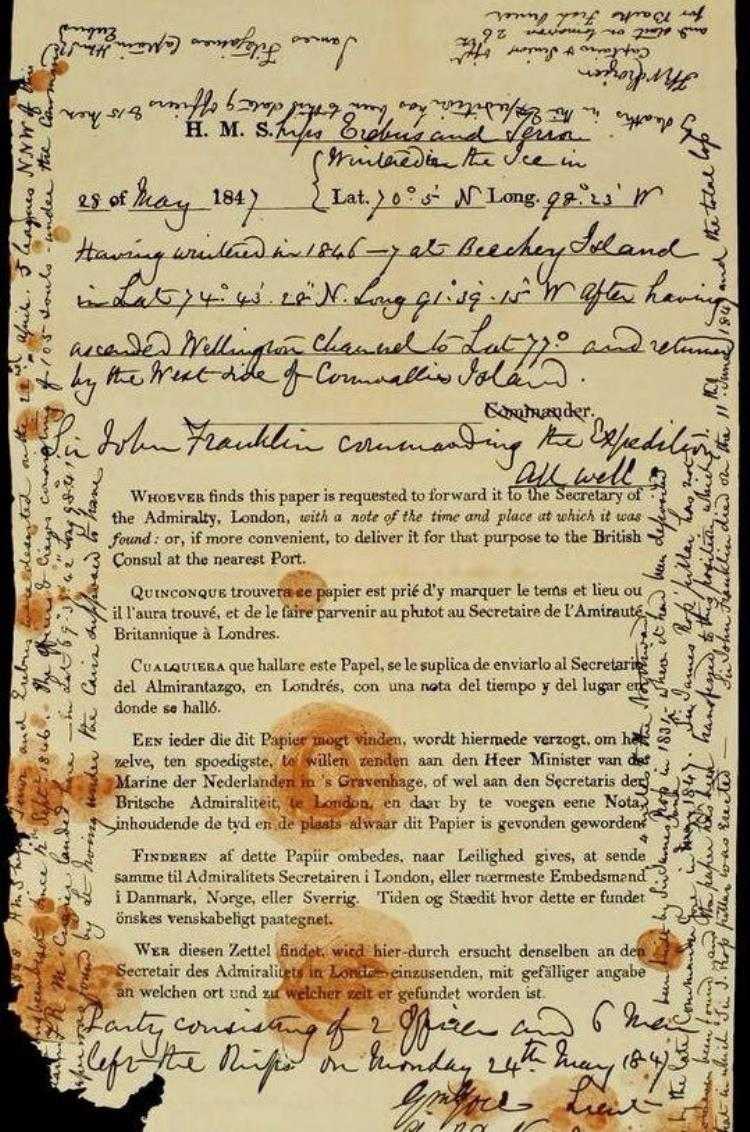 H. M. S.hips Erebus and Terror
Wintered in the Ice in
28 of May 1847 Lat. 70° 5' N Long. 98° 23' W
Having wintered in 1846–7 at Beechey Island
in Lat 74° 43' 28" N. Long 91° 39' 15" W After having
ascended Wellington Channel to Lat 77° and returned
by the West side of Cornwallis Island.
Commander.
Sir John Franklin commanding the Expedition
All well
WHOEVER finds this paper is requested to forward it to the Secretary of
the Admiralty, London, with a note of the time and place at which it was
found: or, if more convenient, to deliver it for that purpose to the British
Consul at the nearest Port.
QUINCONQUE trouvera ce papier est prié d'y marquer le tems et lieu ou
il l'aura trouvé, et de le faire parvenir au plutot au Secretaire de l'Amirauté
Britannique à Londres.
CUALQUIERA que hallare este Papel, se le suplica de enviarlo al Secretario
del Almirantazgo, en Londrés, con una nota del tiempo y del lugar en
donde se halló.
EEN ieder die dit Papier mogt vinden, wordt hiermede verzogt, om het
zelve, ten spoedigste, te willen zenden aan den Heer Minister van de
Marine der Nederlanden in 's Gravenhage, of wel aan den Secretaris der
Britsche Admiraliteit, te London, en daar by te voegen eene Nota,
inhoudende de tyd en de plaats alwaar dit Papier is gevonden geworden.
FINDEREN af dette Papiir ombedes, naar Leilighed gives, at sende
samme til Admiralitets Secretairen i London, eller nœrmeste Embedsmand
i Danmark, Norge, eller Sverrig. Tiden og Stœdit hvor dette er fundet
önskes venskabeligt paategnet.
WER diesen Zettel findet, wird hier-durch ersucht denselben an den
Secretair des Admiralitets in London einzusenden, mit gefälliger angabe
an welchen ort und zu welcher zeit er gefundet worden ist.
Party consisting of 2 Officers and 6 Men
left the Ships on Monday 24th May 1847
Gm Gore Lieut
848. HM Ships Terror and Erebus were deserted on the 22nd April. 5 leagues NNW of this
been beset since 12th Sept 1846. The Officers & Crews consisting of 105 souls under the Command
F.R.M. Crozier landed here — in Lat 69° 37' 42" Long 98° 41'
paper was found by Lt Irving under the Cairn supposed to have
been built by Sir James Ross in 1831 4 miles to the Northward where it had been deposited
by the late Commander Gore in June 1847. Sir James Ross' pillar has not
however been found and the paper has been transferred to this position which is
that in which Sir J. Ross pillar was erected — Sir John Franklin died on the 11th June 1847 and the total loss
by deaths in the Expedition has been to this date 9 Officers & 15 Men
James Fitzjames Captain HMS Erebus
F R M Crozier
Captain & Senior Offr
and start on tomorrow 26th
for Backs Fish River